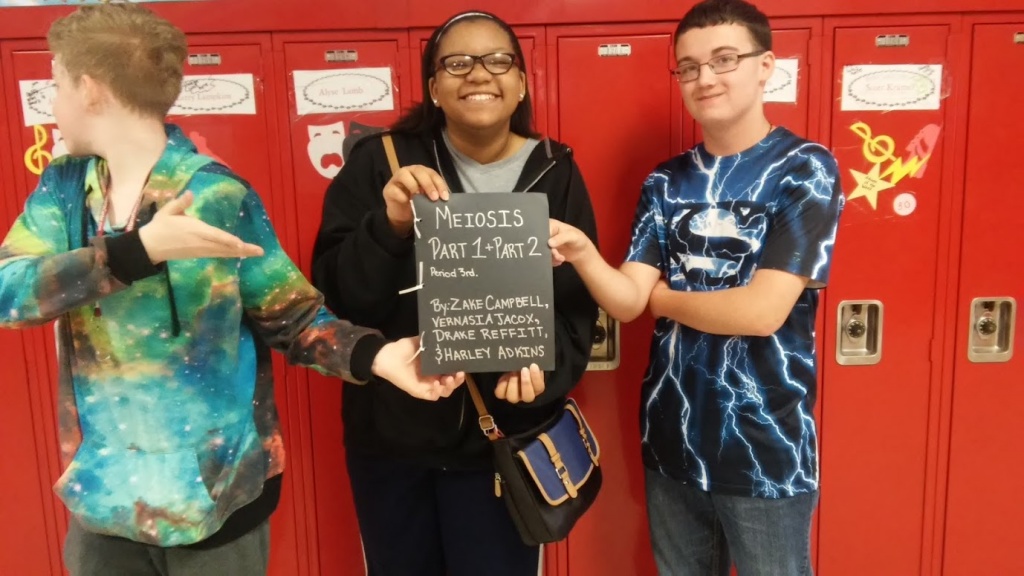 MEIOSIS
PART 1+PART 2
Period 3rd.
By: ZAKE CAMPBELL,
VERNASIA JACOX,
DRAKE REFFITT,
& HARLEY ADKINS